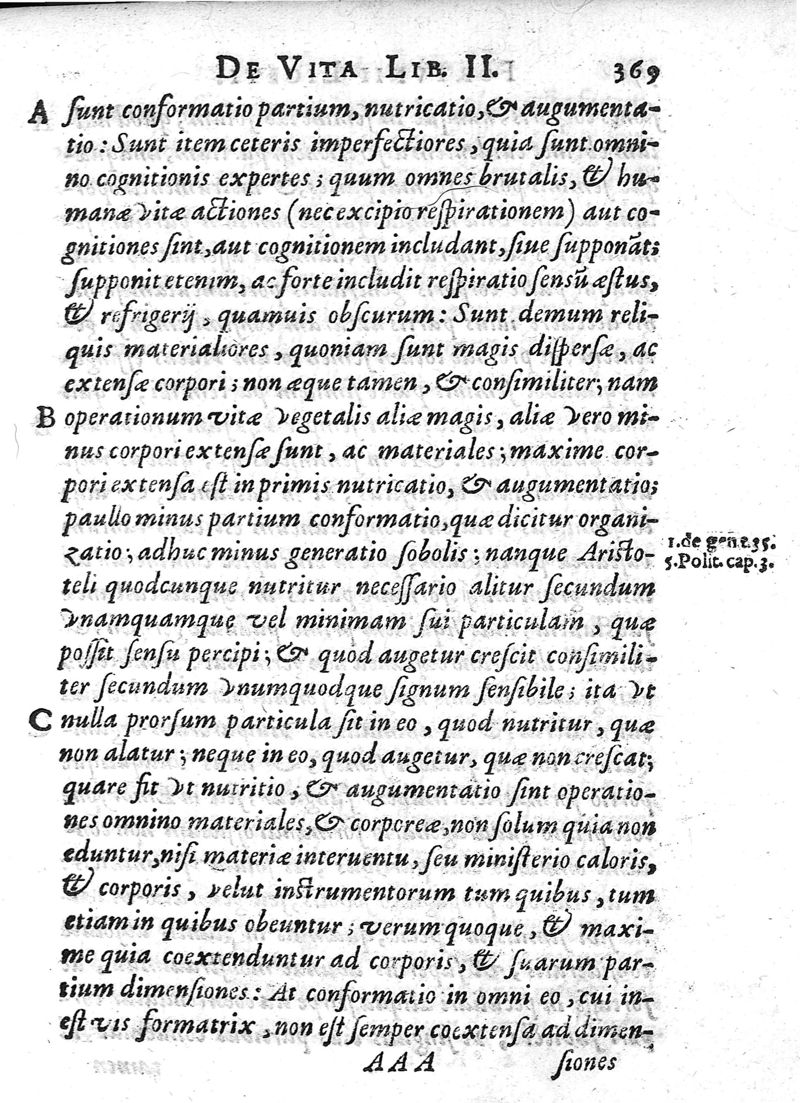 DE VITA LIB. II. 369
A ſunt conformatio partium, nutricatio, & augumenta-
tio: Sunt item ceteris imperfectiores, quia ſunt omni-
no cognitionis expertes; quum omnes brutalis, & hu-
manæ vitæ actiones (nec excipio reſpirationem) aut co-
gnitiones ſint, aut cognitionem includant, ſiue ſupponāt;
ſupponit etenim, ac forte includit reſpiratio ſensū æſtus,
& refrigerij, quamuis obſcurum: Sunt demum reli-
quis materialiores, quoniam ſunt magis diſperſæ, ac
extenſæ corpori; non æque tamen, & conſimiliter; nam
B operationum vitæ vegetalis aliæ magis, aliæ vero mi-
nus corpori extenſæ ſunt, ac materiales; maxime cor-
pori extenſa eſt in primis nutricatio, & augumentatio;
paullo minus partium conformatio, quæ dicitur organi-
zatio; adhuc minus generatio ſobolis; nanque Ariſto-
1. de gen. t. 35.
teli quodcunque nutritur neceſſario alitur ſecundum
5. Polit. cap. 3.
vnamquamque vel minimam ſui particulam, quæ
poſſit ſenſu percipi; & quod augetur creſcit conſimili-
ter ſecundum vnumquodque ſignum ſenſibile; ita vt
C nulla prorſum particula ſit in eo, quod nutritur, quæ
non alatur; neque in eo, quod augetur, quæ non creſcat;
quare fit vt nutritio, & augumentatio ſint operatio-
nes omnino materiales, & corporeæ, non ſolum quia non
eduntur, niſi materiæ interuentu, ſeu miniſterio caloris,
& corporis, velut inſtrumentorum tum quibus, tum
etiam in quibus obeuntur; verum quoque, & maxi-
me quia coextenduntur ad corporis, & ſuarum par-
tium dimenſiones: At conformatio in omni eo, cui in-
eſt vis formatrix, non eſt ſemper coextenſa ad dimen-
AAA ſiones